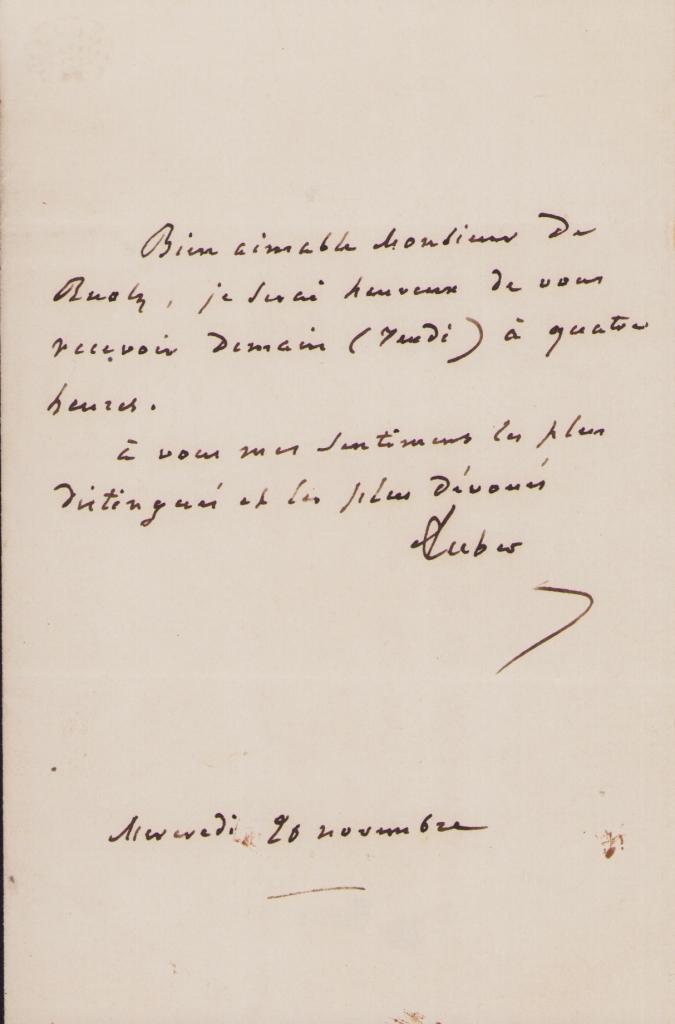 Bien aimable Monsieur de
Ruolz, je serai heureux de vous
recevoir demain (Jeudi) à quatre
heures.
à vous mes sentimens les plus
distingués et les plus dévoués
Auber
Mercredi 20 novembre